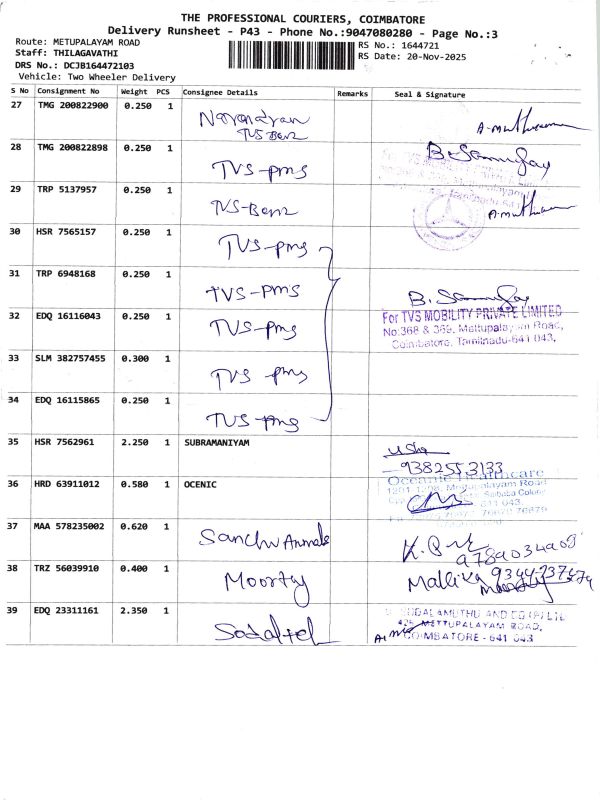 THE PROFESSIONAL COURIERS, COIMBATORE
Delivery Runsheet - P43 - Phone No.:9047080280 - Page No.:3
Route: METUPALAYAM ROAD
Staff: THILAGAVATHI
DRS No.: DCJB164472103
Vehicle: Two Wheeler Delivery
RS No.: 1644721
RS Date: 20-Nov-2025
S No Consignment No Weight PCS Consignee Details Remarks Seal & Signature
27 TMG 200822900 0.250 1
TVS-Benz
28 TMG 200822898 0.250 1 TVS-pms
29 TRP 5137957 0.250 1 TVS-Benz
30 HSR 7565157 0.250 1 TVS-pms
31 TRP 6948168 0.250 1 TVS-pms
32 EDQ 16116043 0.250 1 TVS-pms
For TVS MOBILITY PRIVATE LIMITED
No:368 & 369, Mettupalayam Road,
Coimbatore, Tamilnadu-641 043.
33 SLM 382757455 0.300 1 TVS pms
34 EDQ 16115865 0.250 1 TVS-pms
35 HSR 7562961 2.250 1 SUBRAMANIYAM
Usha
9382553133
36 HRD 63911012 0.580 1 OCENIC
Oceanic Healthcare
Mettupalayam Road
Saibaba Colony
641 043.
37 MAA 578235002 0.620 1
38 TRZ 56039910 0.400 1 Moorthy Mallika
39 EDQ 23311161 2.350 1
METTUPALAYAM ROAD,
COIMBATORE - 641 043